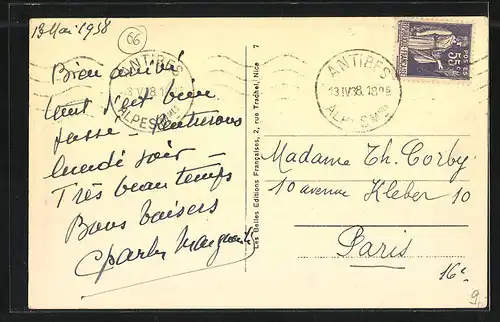 13 Mai 1938
66
Bien arrivé
tout s'est bien
passé – Rentrerons
lundi soir –
Très beau temps
Bons baisers
Charles Marguerite
ANTIBES
13 IV 38. 18
ALPES Mmes
Les Belles Editions Françaises, 2, rue Trachel, Nice 7
ANTIBES
13 IV 38. 18
ALPES Mmes
POSTES
55c
Madame Th. Corby
10 avenue Kleber 10
Paris
16e
9,-